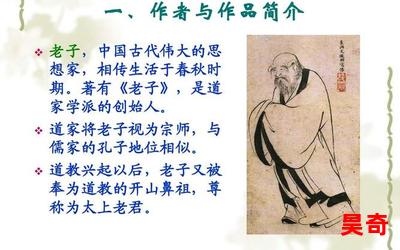 一、作者与作品简介
老子，中国古代伟大的思
想家，相传生活于春秋时
期。著有《老子》，是道
家学派的创始人。
道家将老子视为宗师，与
儒家的孔子地位相似。
道教兴起以后，老子又被
奉为道教的开山鼻祖，尊
称为太上老君。
昊奇